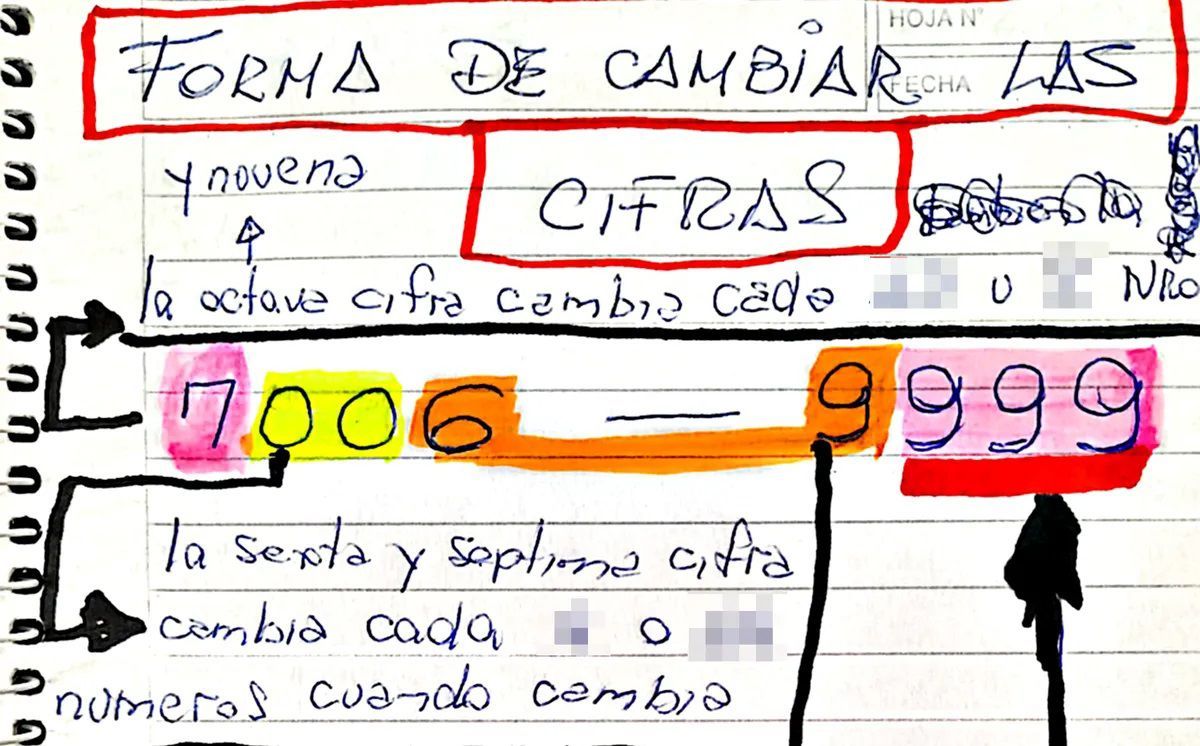 HOJA N°
FORMA DE CAMBiAR LAS
FECHA
y novena CIFRAS
la octava cifra cambia cada u NRO
7006 — 9999
la sexta y septima cifra
cambia cada o
numeros cuando cambia